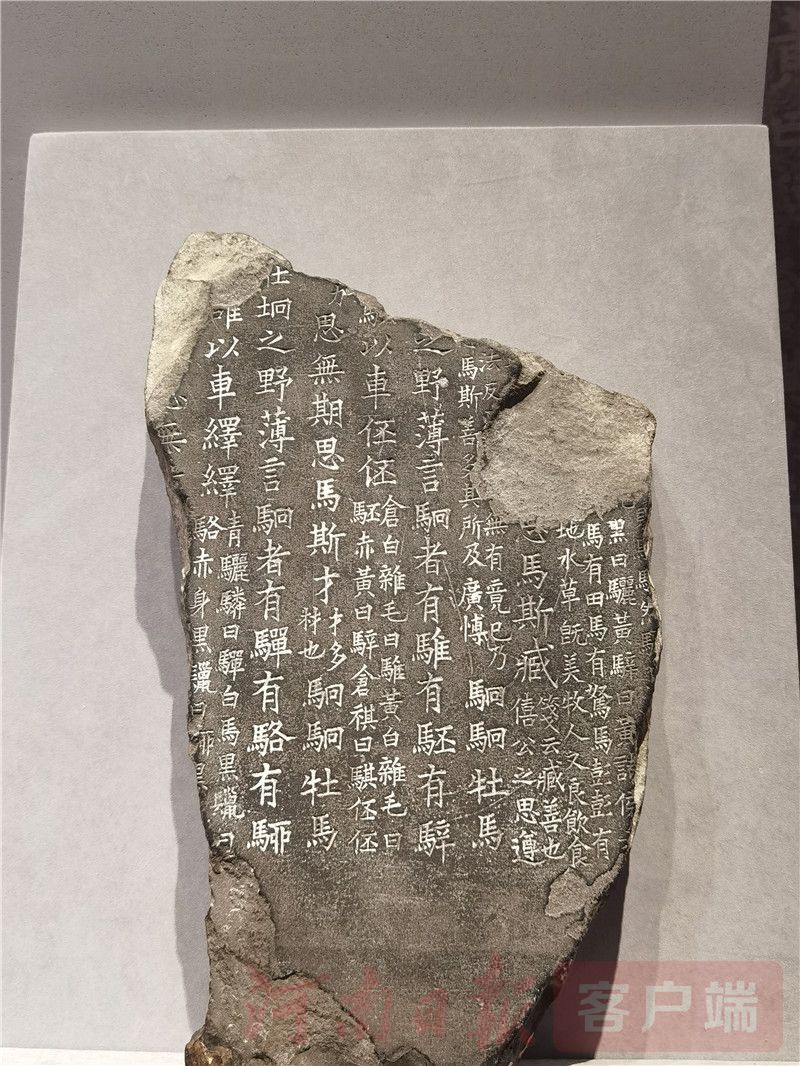 黑曰驪黃騂曰黃諸侯
馬有田馬有駑馬彭彭有
地水草既美牧人又良飲食
思馬斯臧
箋云臧善也
僖公之思遵
法反
無有竟已乃
馬斯善多其所及廣博
駉駉牡馬
之野薄言駉者有騅有駓有騂
以車伾伾
倉白雜毛曰騅黃白雜毛曰
駓赤黃曰騂倉祺曰騏伾伾
力
思無期思馬斯才
才多
材也
駉駉牡馬
在坰之野薄言駉者有驒有駱有駵
雒以車繹繹
青驪驎曰驒白馬黑鬣曰
駱赤身黑鬣曰駵黑
思無
河南日报
客户端